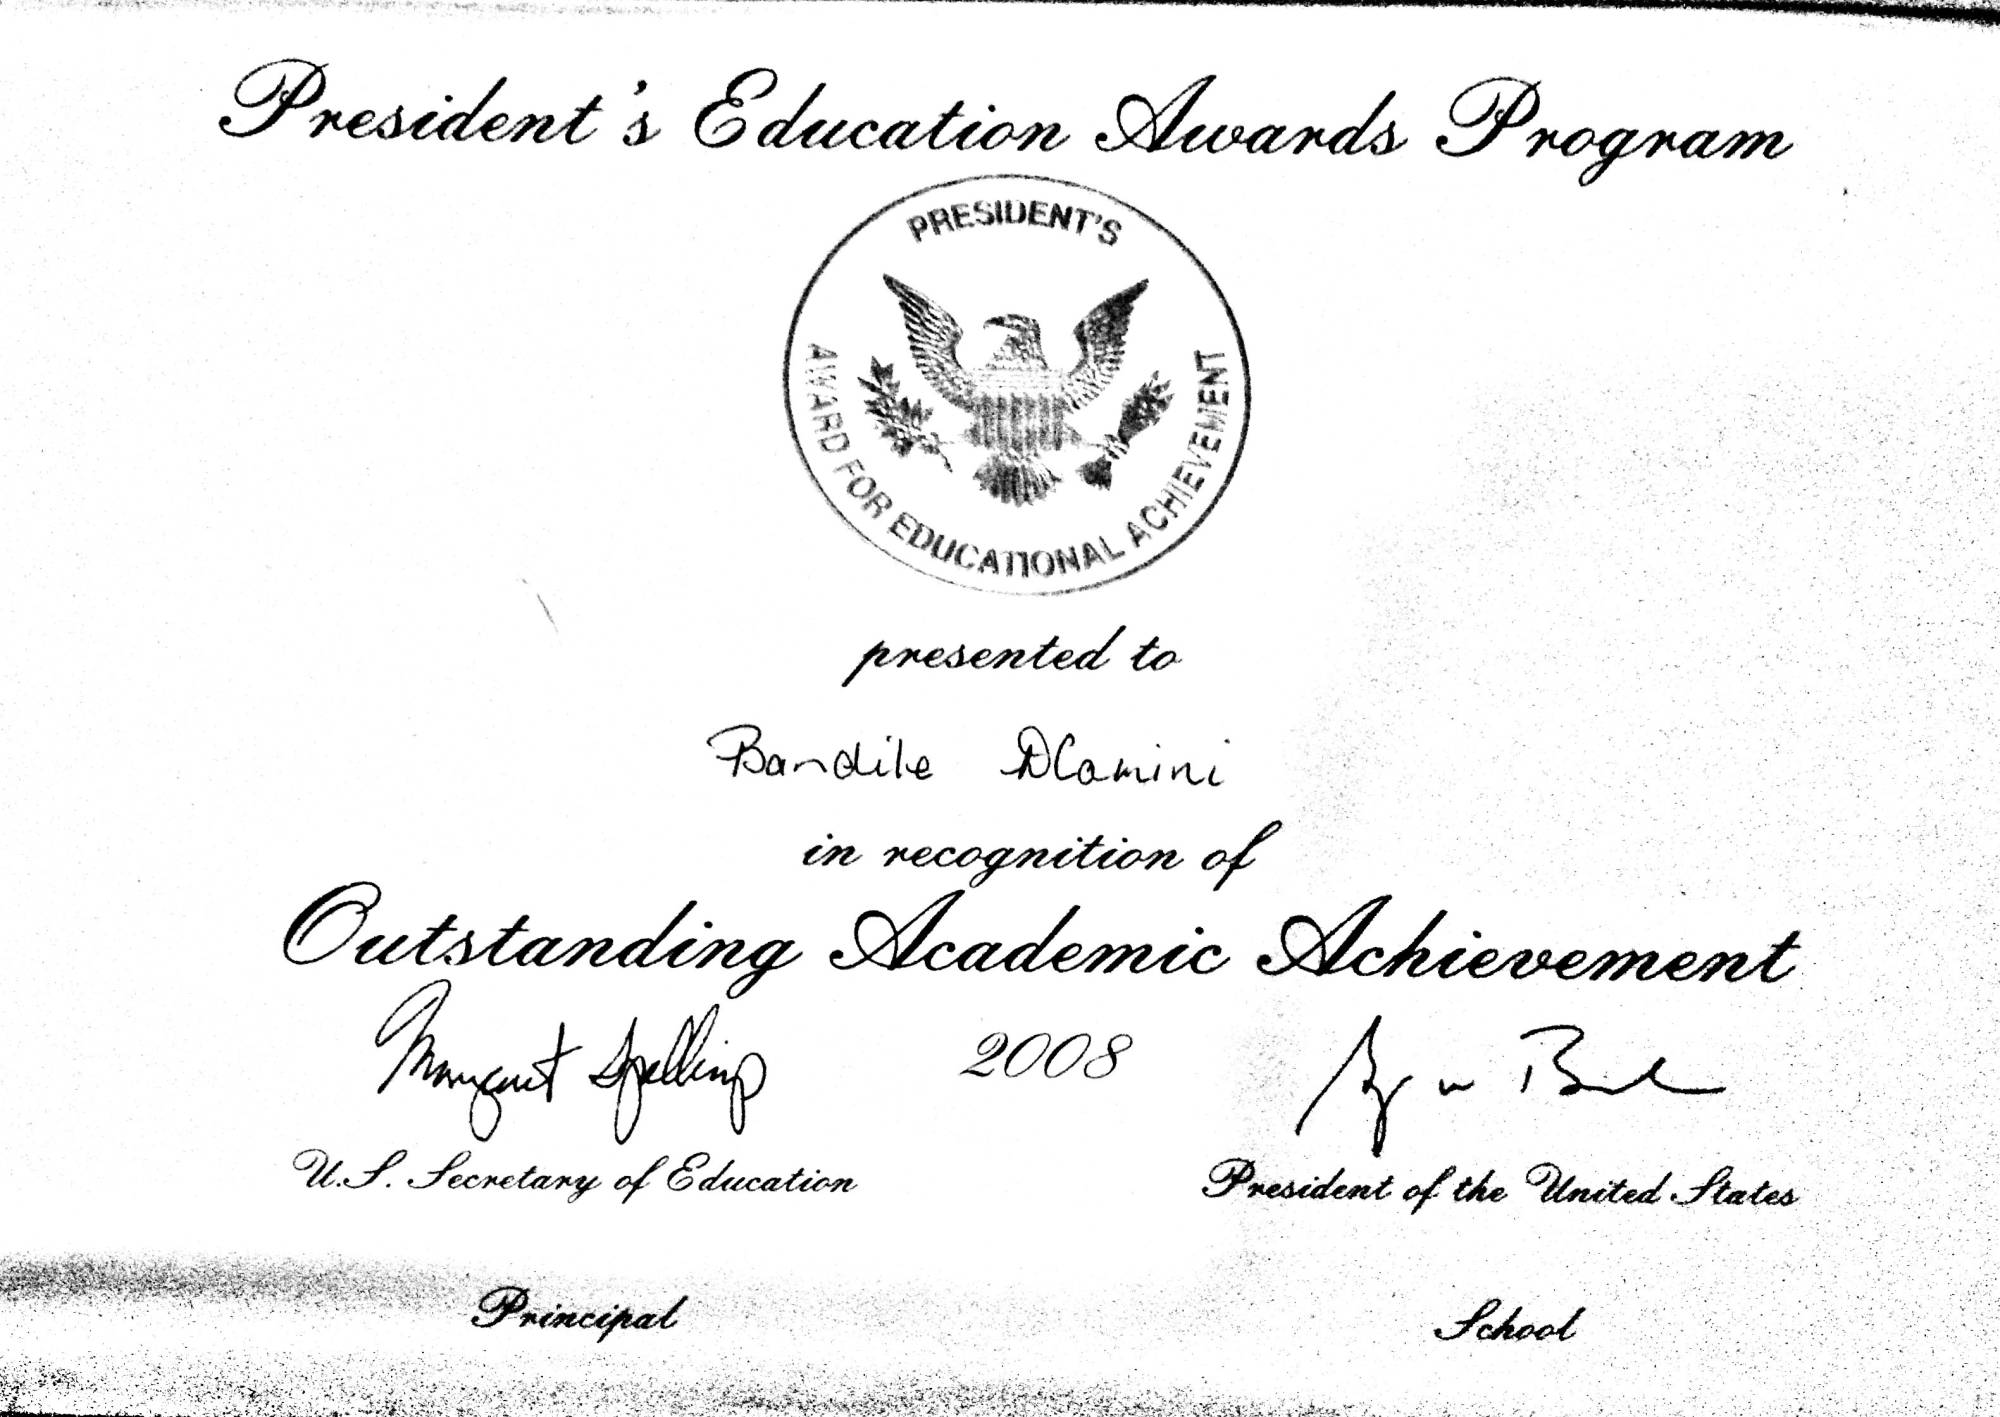 President's Education Awards Program
PRESIDENT'S
AWARD FOR EDUCATIONAL ACHIEVEMENT
presented to
Bandile Dlamini
in recognition of
Outstanding Academic Achievement
Margaret Spellings
2008
U.S. Secretary of Education
President of the United States
Principal
School